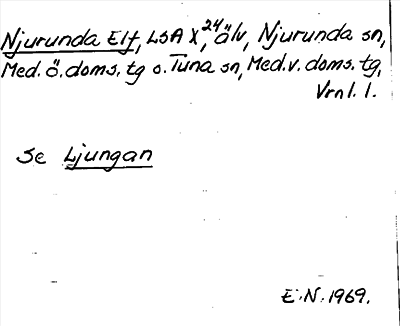 Njurunda Elf, LSA X, 24 älv, Njurunda sn,
Med. ö. doms. tg o. Tuna sn, Med. v. doms. tg,
Vrnl. l.
Se Ljungan
E.N. 1969.